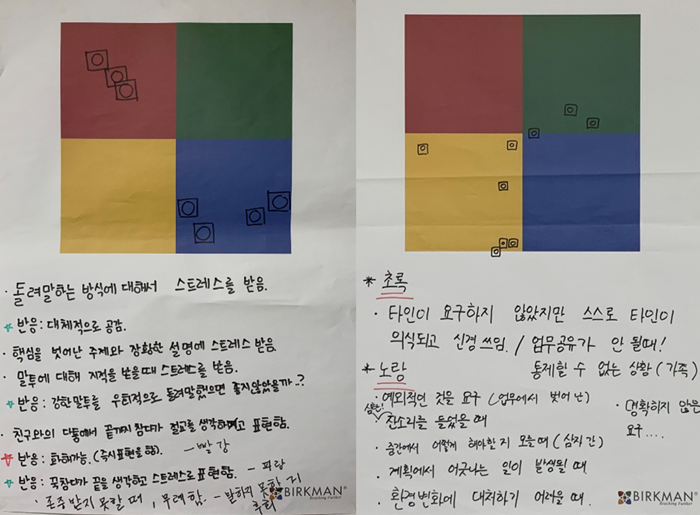 · 돌려말하는 방식에 대해서 스트레스를 받음.
☆ 반응: 대체적으로 공감.
· 핵심을 벗어난 주제와 장황한 설명에 스트레스 받음.
· 말투에 대해 지적을 받을때 스트레스를 받음.
☆ 반응: 강한말투를 우회적으로 돌려말했으면 좋지않았을까..?
· 친구와의 다툼에서 끝까지 참다가 절교를 생각하고 표현함.
☆ 반응: 화해가능. (즉시표현을 함). - 빨강
☆ 반응: 꾹참다가 끝을 생각하고 스트레스로 표현함. - 파랑
· 존중 받지 못할 때, 무례함. - 말하지 못한 지
BIRKMAN®
* 초록
· 타인이 요구하지 않았지만 스스로 타인이
의식되고 신경쓰임. / 업무공유가 안 될때!
통제할 수 없는 상황 (가족)
* 노랑
· 예외적인 것을 요구 (업무에서 벗어난)
잔소리를 들었을 때
· 중간에서 어떻게 해야할 지 모를 때 (삼자 간)
· 계획에서 어긋나는 일이 발생될 때
· 환경변화에 대처하기 어려울 때.
· 명확하지 않은
요구....
BIRKMAN®